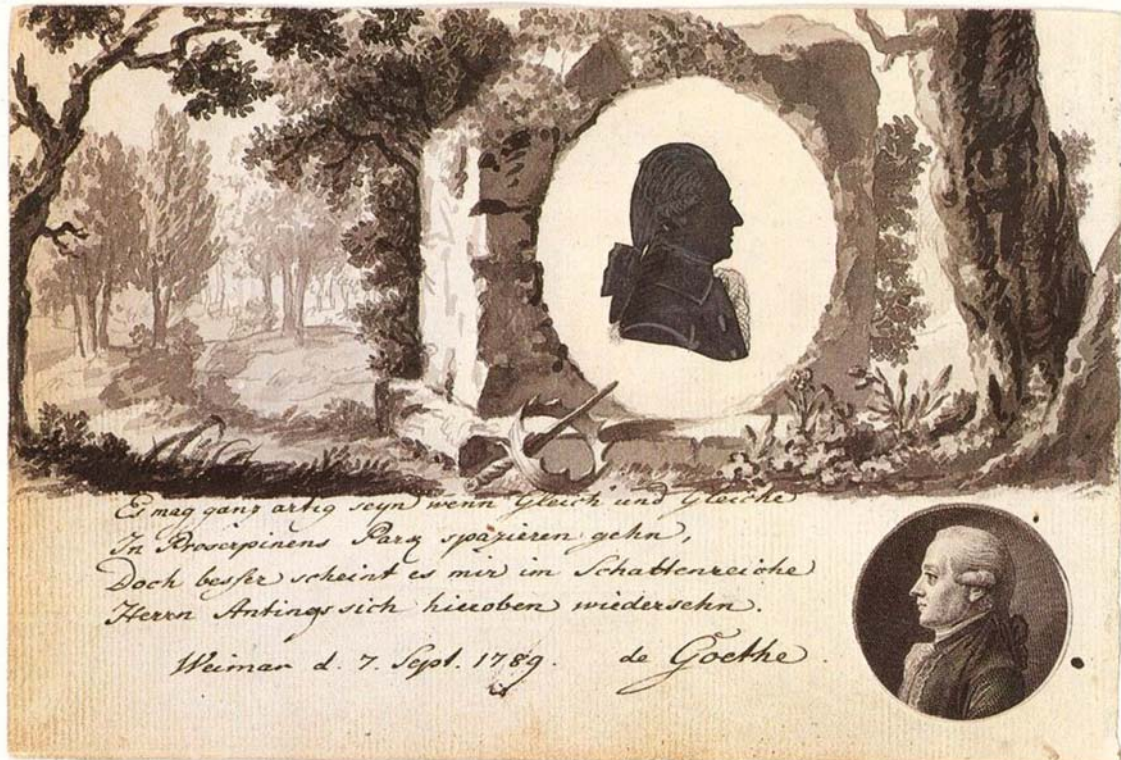 Es mag ganz artig seyn wenn Gleich' und Gleiche
In Proserpinens Park spazieren gehn,
Doch besser scheint es mir im Schattenreiche
Herrn Antings sich hieroben wiedersehn.
Weimar d. 7. Sept. 1789. de Goethe.